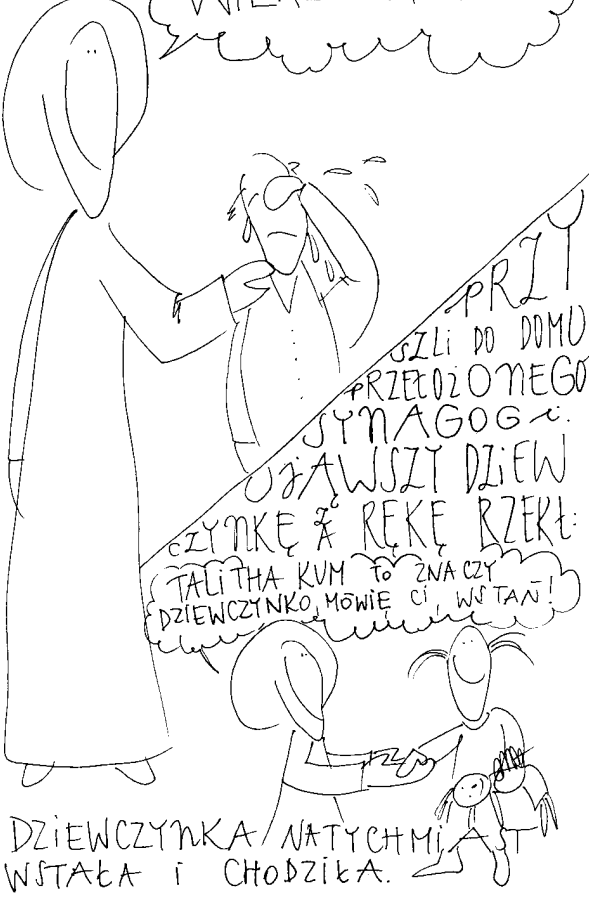 PRZY
SZLI DO DOMU
PRZEŁOŻONEGO
SYNAGOGI.
UJĄWSZY DZIEW
CZYNKĘ ZA RĘKĘ RZEKŁ:
TALITHA KUM TO ZNACZY
DZIEWCZYNKO, MÓWIĘ CI, WSTAŃ!
DZIEWCZYNKA NATYCHMIAST
WSTAŁA I CHODZIŁA.